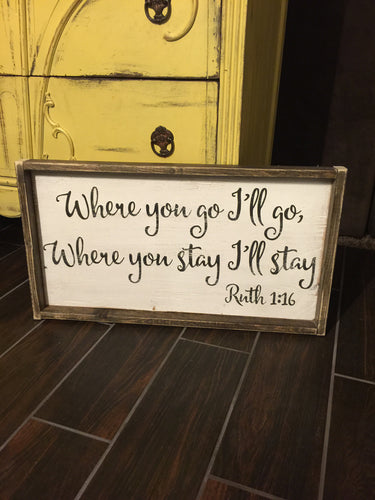 Where you go I'll go,
Where you stay I'll stay
Ruth 1:16